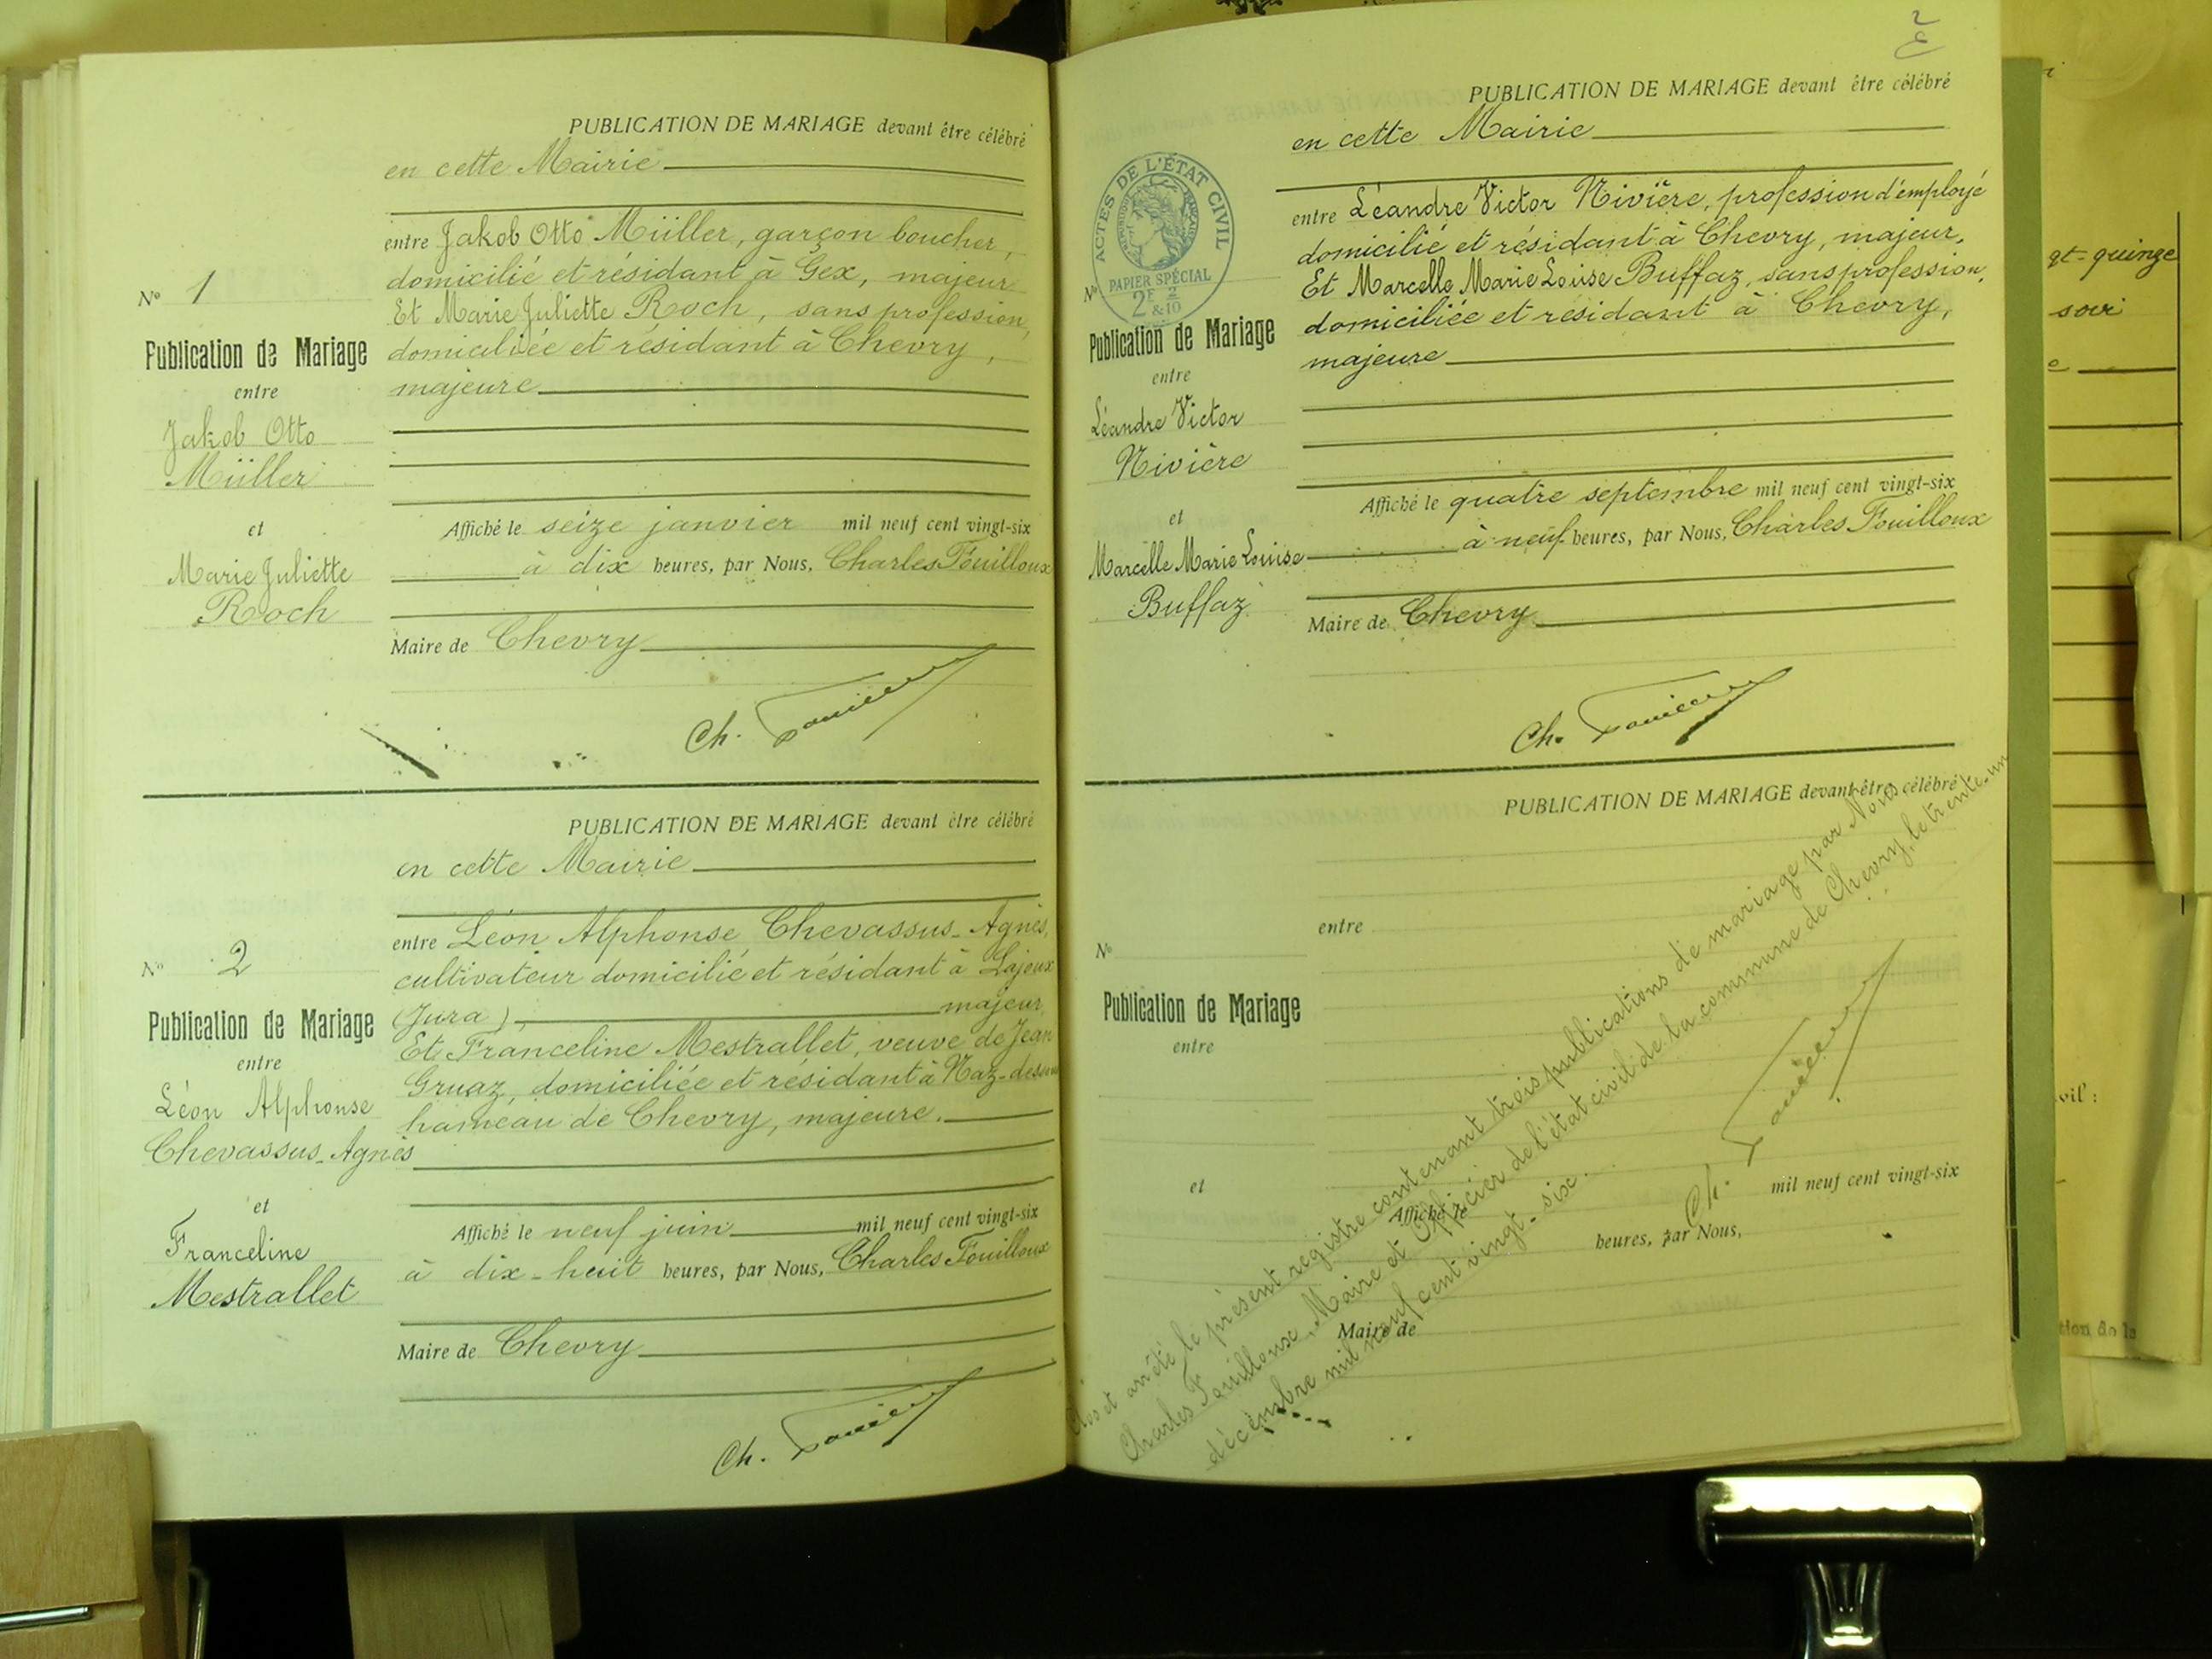 PUBLICATION DE MARIAGE devant être célébré
en cette Mairie
entre Jakob Otto Müller, garçon boucher,
domicilié et résidant à Gex, majeur
Et Marie Juliette Roch, sans profession,
domiciliée et résidant à Chevry,
majeure
Nº 1
Publication de Mariage
entre
Jakob Otto
Müller
et
Marie Juliette
Roch
Affiché le seize janvier mil neuf cent vingt-six
à dix heures, par Nous, Charles Fouilloux
Maire de Chevry
Ch. Fouilloux
PUBLICATION DE MARIAGE devant être célébré
en cette Mairie
entre Léon Alphonse Chevassus-Agnès,
cultivateur domicilié et résidant à Lajoux
(Jura), majeur
Et Franceline Mestrallet, veuve de Jean
Gruaz, domiciliée et résidant à Naz-dessous
hameau de Chevry, majeure.
Nº 2
Publication de Mariage
entre
Léon Alphonse
Chevassus-Agnès
et
Franceline
Mestrallet
Affiché le neuf juin mil neuf cent vingt-six
à dix-huit heures, par Nous, Charles Fouilloux
Maire de Chevry
Ch. Fouilloux
PUBLICATION DE MARIAGE devant être célébré
en cette Mairie
ACTES DE L'ÉTAT CIVIL
RÉPUBLIQUE FRANÇAISE
PAPIER SPÉCIAL
2F 2/10
&
entre Léandre Victor Nivière, profession d'employé
domicilié et résidant à Chevry, majeur,
Et Marcelle Marie Louise Buffaz, sans profession,
domiciliée et résidant à Chevry,
majeure
Nº
Publication de Mariage
entre
Léandre Victor
Nivière
et
Marcelle Marie Louise
Buffaz
Affiché le quatre septembre mil neuf cent vingt-six
à neuf heures, par Nous, Charles Fouilloux
Maire de Chevry
Ch. Fouilloux
PUBLICATION DE MARIAGE devant être célébré
entre
Nº
Publication de Mariage
entre
et
Affiché le
mil neuf cent vingt-six
heures, par Nous,
Maire de
Clos et arrêté le présent registre contenant trois publications de mariage par Nous
Charles Fouilloux, Maire et Officier de l'état civil de la commune de Chevry, le trente-un
décembre mil neuf cent vingt-six.
Ch. Fouilloux
gt-quinze
soir
vil :
tion de la